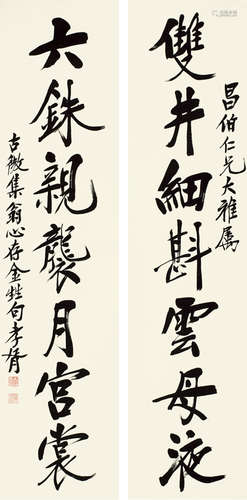 昌伯仁兄大雅屬
雙井細斟雲母液
六銖親襲月宮裳
古微集翁心存金甡句孝臧